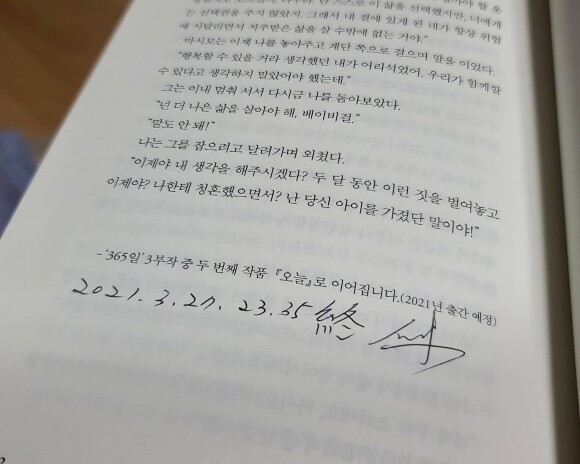 는 선택권을 주지 않았지. 그래서 내 곁에 있게 된 네가 항상 위험
에 시달리면서 저주받은 삶을 살 수밖에 없는 거야."
마시모는 이제 나를 놓아주고 계단 쪽으로 걸으며 말을 이었다.
"행복할 수 있을 거라 생각했던 내가 어리석었어. 우리가 함께할
수 있다고 생각하지 말았어야 했는데."
그는 이내 멈춰 서서 다시금 나를 돌아보았다.
"넌 더 나은 삶을 살아야 해, 베이비걸."
"말도 안 돼!"
나는 그를 잡으려고 달려가며 외쳤다.
"이제야 내 생각을 해주시겠다? 두 달 동안 이런 짓을 벌여놓고
이제야? 나한테 청혼했으면서? 난 당신 아이를 가졌단 말이야!"
-'365일' 3부작 중 두 번째 작품 『오늘』로 이어집니다.(2021년 출간 예정)
2021. 3. 27. 23.35